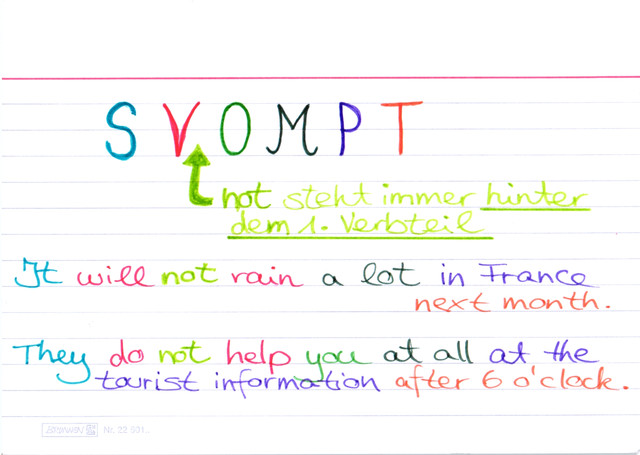 SVOMPT
not steht immer hinter
dem 1. Verbteil
It will not rain a lot in France
next month.
They do not help you at all at the
tourist information after 6 o'clock.